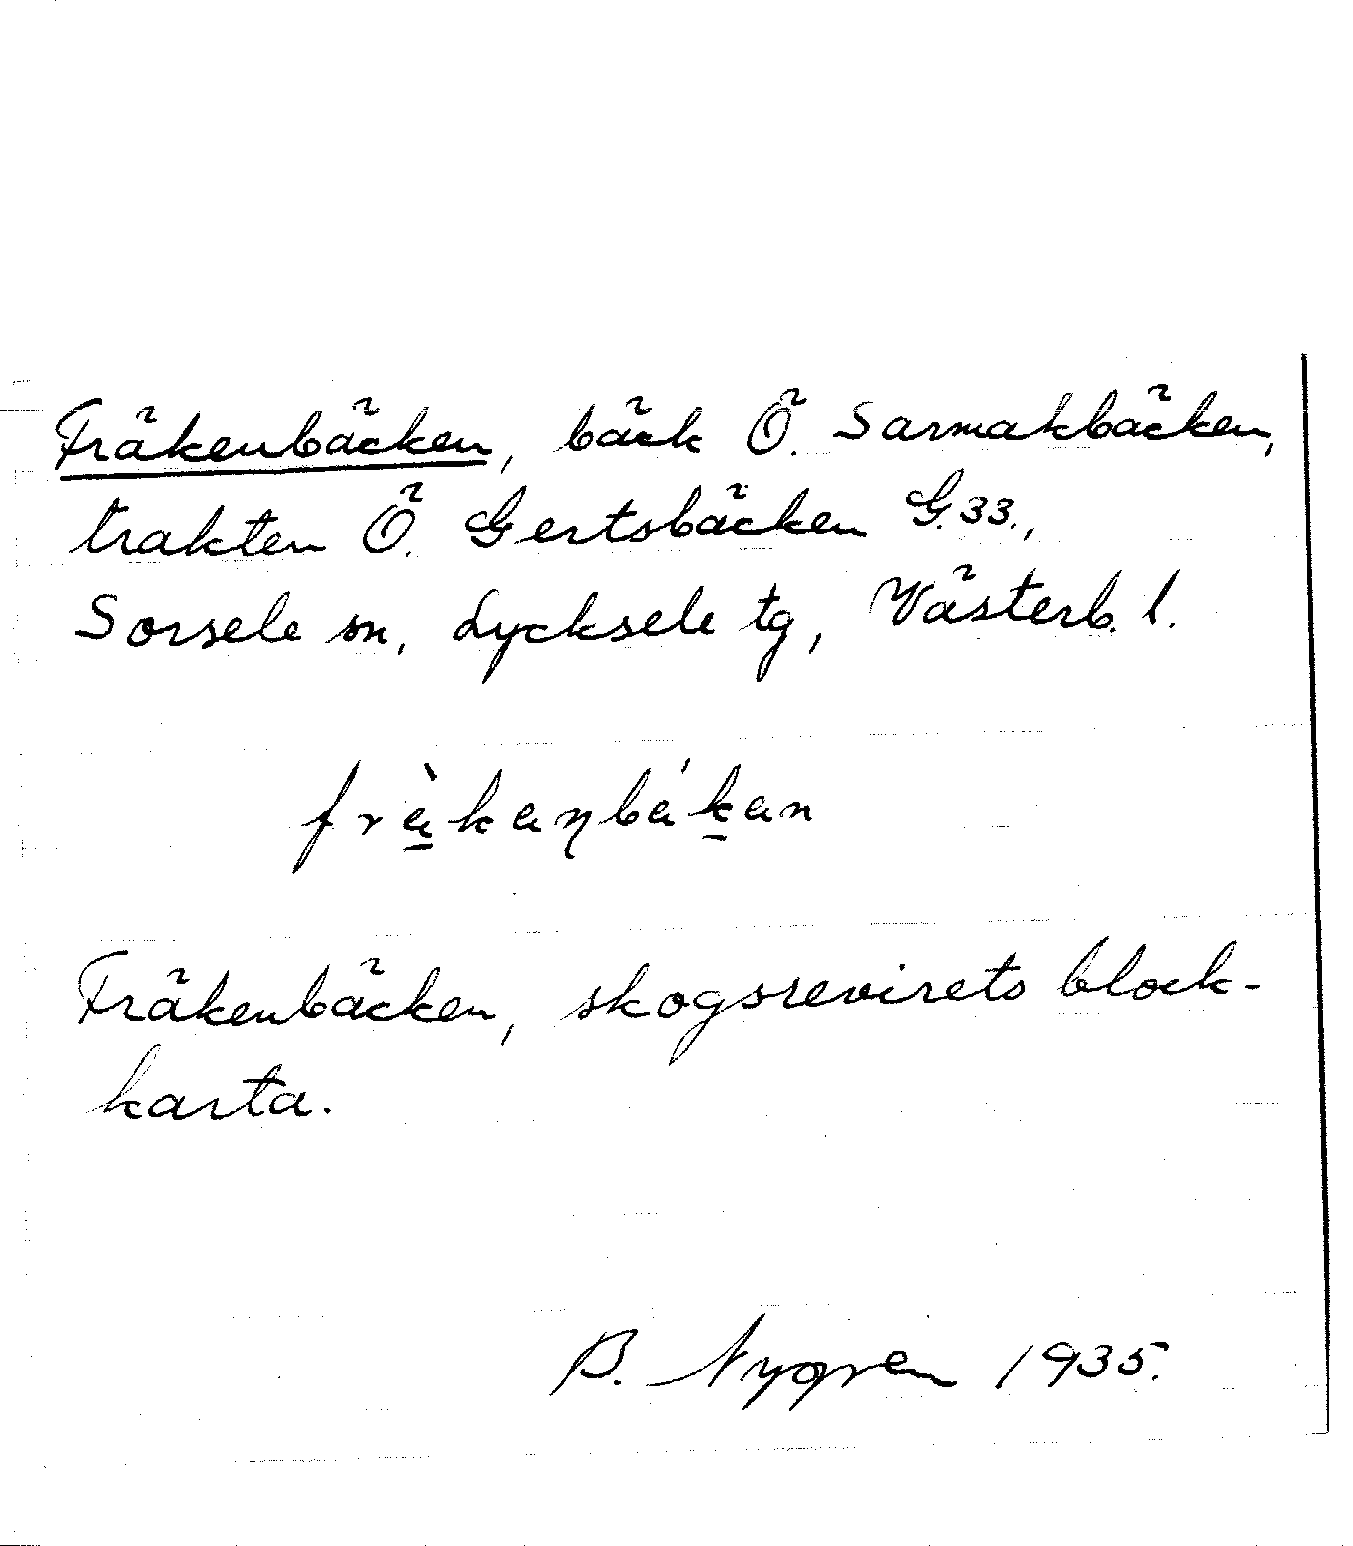 Fräkenbäcken, bäck Ö. Sarmakbäcken,
trakten Ö. Gertsbäcken G. 33.,
Sorsele sn, Lycksele tg, Västerb. l.
Fräkenbäcken, skogsrevirets block-
karta.
B. Nygren 1935.